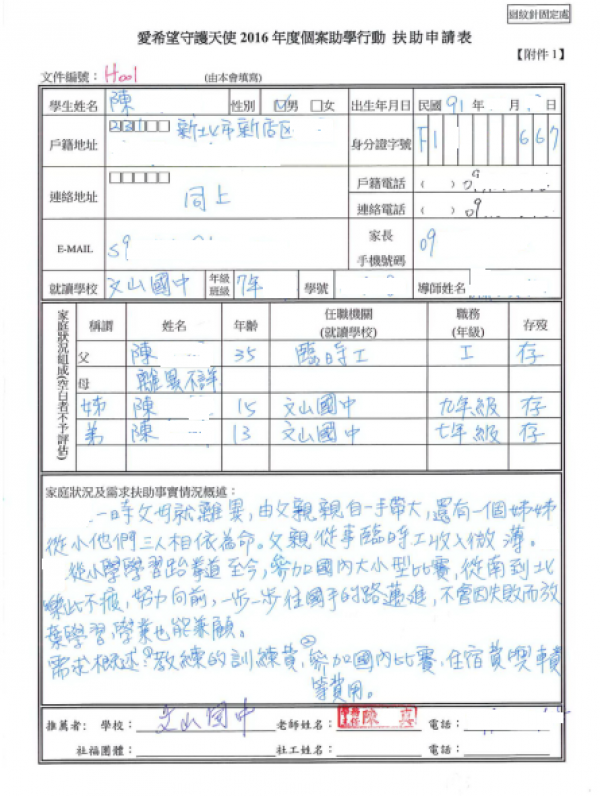 迴紋針固定處
愛希望守護天使 2016 年度個案助學行動 扶助申請表
【附件 1】
文件編號：H001 (由本會填寫)
學生姓名 陳 性別 ☑男 □女 出生年月日 民國 91 年 月 日
戶籍地址 231 新北市新店区 身分證字號 F1 667
連絡地址 同上 戶籍電話 ( ) 09
連絡電話 ( ) 09
E-MAIL s9 家長手機號碼 09
就讀學校 文山國中 年級班級 7年 學號 導師姓名
家庭狀況組成(空白者不予評估)
稱謂 姓名 年齡 任職機關(就讀學校) 職務(年級) 存歿
父 陳 35 臨時工 工 存
母 離異不詳
姊 陳 15 文山國中 九年級 存
弟 陳 13 文山國中 七年級 存
家庭狀況及需求扶助事實情況概述：
時父母就離異，由父親親自一手帶大，還有一個姊姊
從小他們三人相依為命。父親從事臨時工收入微薄。
從小學學習跆拳道至今，參加國內大小型比賽，從南到北
樂此不疲，努力向前，一步一步往國手的路邁進，不會因失敗而放
棄學習，學業也能兼顧。
需求概述：教練的訓練費，②參加國內比賽，住宿費與車費
等費用。
推薦者： 學校： 文山國中 老師姓名： 陳 真 電話：
社福團體： 社工姓名： 電話：